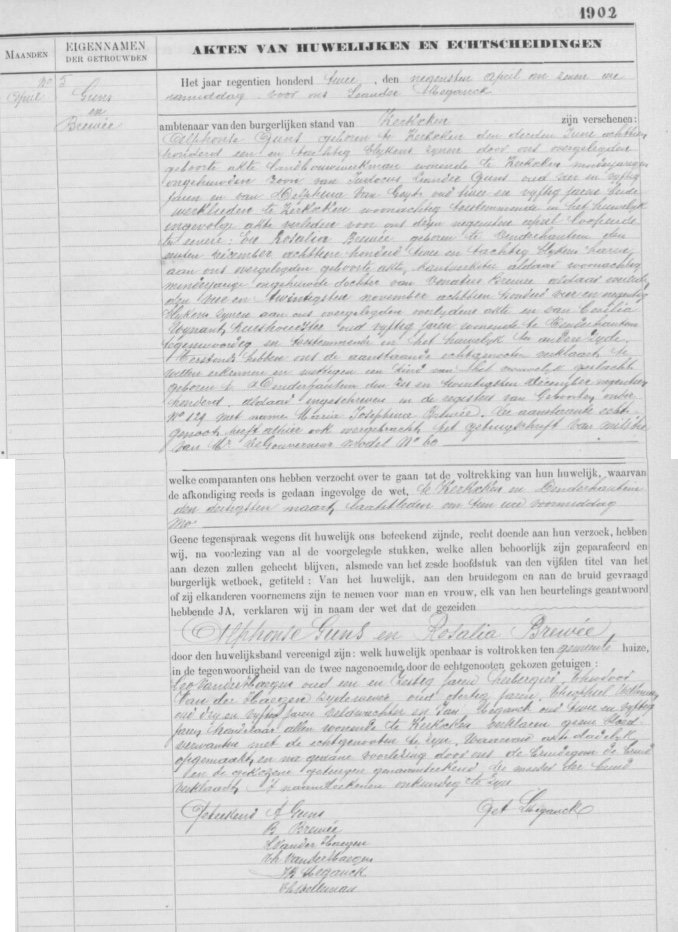 1902
MAANDEN
EIGENNAMEN
DER GETROUWDEN
AKTEN VAN HUWELIJKEN EN ECHTSCHEIDINGEN
No 5
April
Guns
en
Brewée
Het jaar negentien honderd twee, den negensten april om zeven ure
namiddag voor ons Leander Meganck
ambtenaar van den burgerlijken stand van Kerkxken zijn verschenen:
Alphonse Guns geboren te Kerkxken den derden June achttien
honderd een en tachtig blykens zynen door ons overgelegden
geboorte akte landbouwwerkman wonende te Kerkxken minderjarigen
ongehuwden zoon van Judocus Leander Guns oud vier en vyftig
jaren en van Delphine Van Geyt oud twee en vyftig jaren beide
werklieden te Kerkxken woonachtig toestemmende in het huwelyk
ingevolge akte verleden voor ons dezen negensten april loopende
ter eenre: En Rosalia Brewée geboren te Denderhautem den
december achttien honderd twee en tachtig blykens haren
aan ons overgelegden geboorte akte, aldaar woonachtig
minderjarige ongehuwde dochter van Donatus Brewée aldaar overleden
den vier en twintigsten november achttien honderd vier en negentig
blykens zynen aan ons overgelegden overlydens akte en van
Wynant, huishoudster oud vyftig jaren wonende te Denderhautem
tegenwoordig en toestemmende in het huwelyk ter andere zyde.
Eerstens hebben ons de aanstaande echtgenooten verklaard te
willen erkennen en wettigen een kind van het vrouwelyk geslacht
geboren te Denderhautem den zes en twintigsten december negentien
honderd aldaar ingeschreven in de registers van Geboorten onder
No 129 met name Maria Josephina Brewée. De aanstaande echt-
genoot heeft alhier ook overgebracht het getuigschrift van militie
van Mr. de Gouverneur Model No 60
welke comparanten ons hebben verzocht over te gaan tot de voltrekking van hun huwelijk, waarvan
de afkondiging reeds is gedaan ingevolge de wet, te Kerkxken en Denderhautem
den dertigsten maart laatstleden om tien ure voormiddag
Geene tegenspraak wegens dit huwelijk ons beteekend zijnde, recht doende aan hun verzoek, hebben
wij, na voorlezing van al de voorgelegde stukken, welke allen behoorlijk zijn geparafeerd en
aan dezen zullen gehecht blijven, alsmede van het zesde hoofdstuk van den vijfden titel van het
burgerlijk wetboek, getiteld: Van het huwelijk, aan den bruidegom en aan de bruid gevraagd
of zij elkanderen voornemens zijn te nemen voor man en vrouw, elk van hen beurtelings geantwoord
hebbende JA, verklaren wij in naam der wet dat de gezeiden
Alphonse Guns en Rosalia Brewée
door den huwelijksband vereenigd zijn: welk huwelijk openbaar is voltrokken ten gemeente huize,
in de tegenwoordigheid van de twee nagenoemde door de echtgenooten gekozen getuigen:
Leo Vanderhaegen oud een en zestig jaren herbergier, Theodoor
Van der Haegen zydewever oud dertig jaren, Theophiel
oud dry en vyftig jaren veldwachter en Jan Meganck oud twee en vyftig
jaren allen wonende te Kerkxken verklaren geene bloed
verwanten met de echtgenooten te zyn. Waarvan akt dadelyk
opgemaakt, en na gedane voorlezing door ons de bruidegom de bruid
en de gekozene getuigen genaamteekend. De moeder der bruid
verklaard 't naamteekenen onkundig te zyn
Geteekend A Guns Get L Meganck
R. Brewée
L Vander Haegen
Th VanderHaegen
Meganck